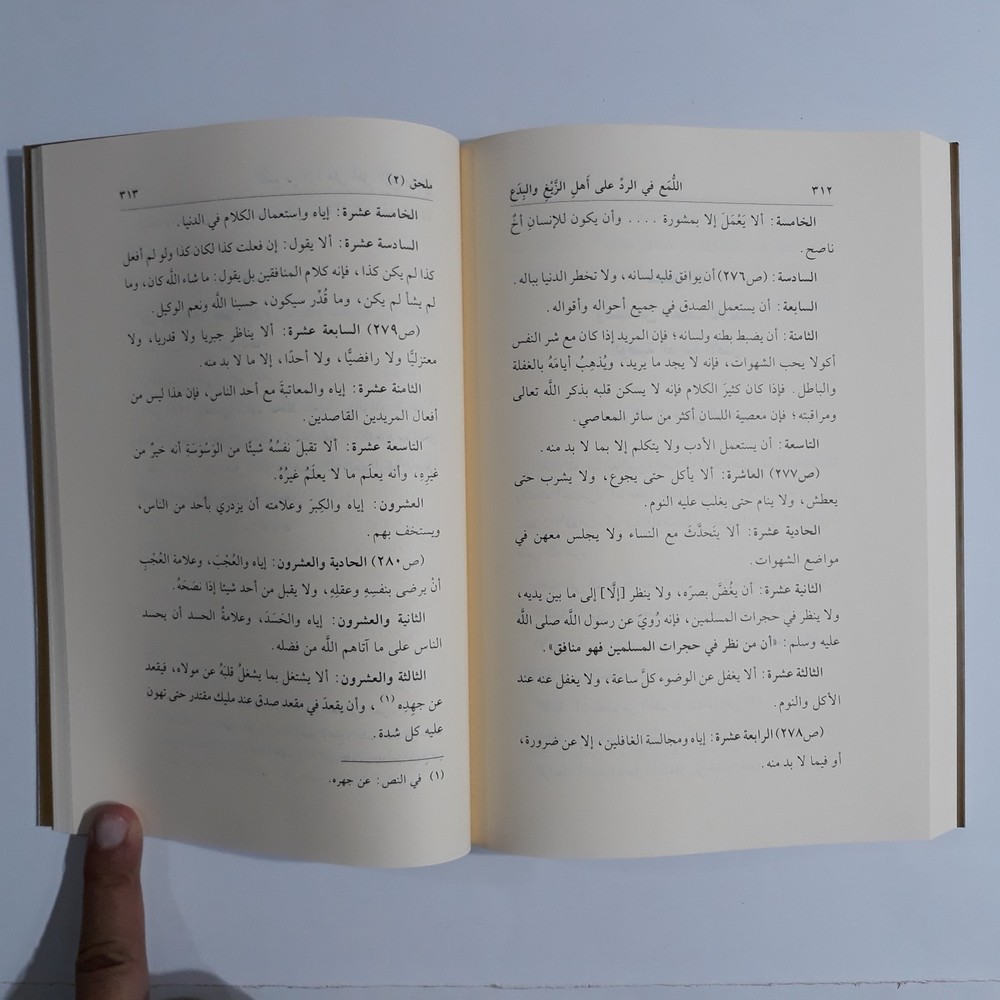 ٣١٢ اللُّمَع في الردِّ على أهلِ الزَّيْغِ والبِدَع
الخامسة: ألا يَعْمَلَ إلا بمشورة .... وأن يكون للإنسانِ أخٌ
ناصح.
السادسة: (ص٢٧٦) أن يوافق قلبه لسانه، ولا تخطر الدنيا بباله.
السابعة: أن يستعمل الصدق في جميع أحواله وأقواله.
الثامنة: أن يضبط بطنه ولسانه؛ فإن المريد إذا كان مع شر النفس
أكولا يحب الشهوات، فإنه لا يجد ما يريد، ويُذهِبُ أيامَهُ بالغفلة
والباطل. فإذا كان كثيرَ الكلام فإنه لا يسكن قلبه بذكر اللَّه تعالى
ومراقبته؛ فإن معصية اللسان أكثر من سائر المعاصي.
التاسعة: أن يستعمل الأدب ولا يتكلم إلا بما لا بد منه.
(ص٢٧٧) العاشرة: ألا يأكل حتى يجوع، ولا يشرب حتى
يعطش، ولا ينام حتى يغلب عليه النوم.
الحادية عشرة: ألا يتَحدَّثَ مع النساء ولا يجلس معهن في
مواضع الشهوات.
الثانية عشرة: أن يغُضَّ بصرَه، ولا ينظر [إلَّا] إلى ما بين يديه،
ولا ينظر في حجرات المسلمين، فإنه رُويَ عن رسول اللَّه صلى اللَّه
عليه وسلم: «أن من نظر في حجرات المسلمين فهو منافق».
الثالثة عشرة: ألا يغفل عن الوضوء كلَّ ساعة، ولا يغفل عنه عند
الأكل والنوم.
(ص٢٧٨) الرابعة عشرة: إياه ومجالسة الغافلين، إلا عن ضرورة،
أو فيما لا بد منه.
ملحق (٢) ٣١٣
الخامسة عشرة: إياه واستعمال الكلام في الدنيا.
السادسة عشرة: ألا يقول: إن فعلت كذا لكان كذا ولو لم أفعل
كذا لم يكن كذا، فإنه كلام المنافقين بل يقول: ما شاء اللَّه كان، وما
لم يشأ لم يكن، وما قُدِّر سيكون، حسبنا اللَّه ونعم الوكيل.
(ص٢٧٩) السابعة عشرة: ألا يناظر جبريا ولا قدريا، ولا
معتزليًّا ولا رافضيًّا، ولا أحدًا، إلا ما لا بد منه.
الثامنة عشرة: إياه والمعاتبةَ مع أحد الناس، فإن هذا ليس من
أفعال المريدين القاصدين.
التاسعة عشرة: ألا تقبلَ نفسُهُ شيئًا من الوَسْوَسَةِ أنه خيرٌ من
غيرِهِ، وأنه يعلَم ما لا يعلَمُ غيرُهُ.
العشرون: إياه والكِبرَ وعلامته أن يزدري بأحد من الناس،
ويستخف بهم.
(ص٢٨٠) الحادية والعشرون: إياه والعُجْبَ، وعلامة العُجْبِ
أنْ يرضى بنفسِهِ وعقلِهِ، ولا يقبل من أحد شيئا إذا نصَحَهُ.
الثانية والعشرون: إياه والحَسَدَ، وعلامةُ الحسد أن يحسد
الناس على ما آتاهم اللَّه من فضله.
الثالثة والعشرون: ألا يشتغل بما يشغلُ قلبَهُ عن مولاه، فيقعد
عن جهدِه (١)، وأن يقعدَ في مقعد صدق عند مليك مقتدر حتى تهون
عليه كل شدة.
(١) في النص: عن جهره.